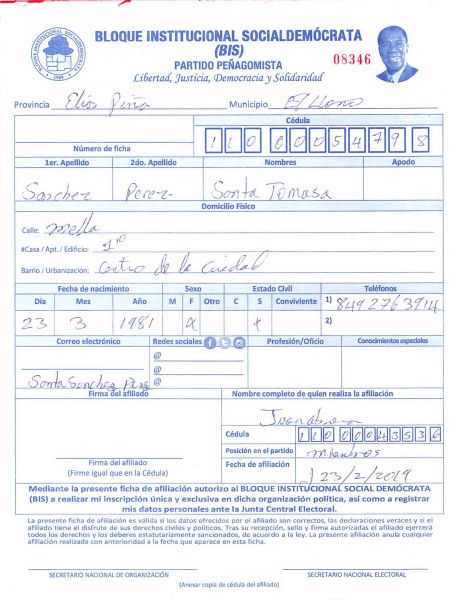 BLOQUE INSTITUCIONAL SOCIALDEMÓCRATA
(BIS)
PARTIDO PEÑAGOMISTA
Libertad, Justicia, Democracia y Solidaridad
08346
Provincia Elias Peña Municipio El Llano
Cédula
Número de ficha 110 0005479 8
1er. Apellido 2do. Apellido Nombres Apodo
Sanchez Perez Santa Tomasa
Domicilio Físico
Calle: mella
#Casa / Apt. / Edificio: 1
Barrio / Urbanización: Centro de la Ciudad
Fecha de nacimiento Sexo Estado Civil Teléfonos
Día Mes Año M F Otro C S Conviviente 1) 849 276 3914
23 3 1981 x x 2)
Correo electrónico Redes sociales Profesión/Oficio Conocimientos especiales
@
@
Santa Sanchez Perez @
Firma del afiliado Nombre completo de quien realiza la afiliación
Cédula 11000043536
Posición en el partido miembros
Firma del afiliado Fecha de afiliación 23/2/2019
(Firme igual que en la Cédula)
Mediante la presente ficha de afiliación autorizo al BLOQUE INSTITUCIONAL SOCIAL DEMÓCRATA
(BIS) a realizar mi inscripción única y exclusiva en dicha organización política, así como a registrar
mis datos personales ante la Junta Central Electoral.
La presente ficha de afiliación es válida si los datos ofrecidos por el afiliado son correctos, las declaraciones veraces y si el
afiliado tiene el disfrute de sus derechos civiles y políticos. Tras su recepción, sello y firma autorizadas el afiliado ejercerá
todos los derechos y los deberes estatutariamente sancionados, de acuerdo a la ley. La presente afiliación anula cualquier
afiliación realizada con anterioridad a la fecha que aparece en esta ficha.
SECRETARIO NACIONAL DE ORGANIZACIÓN SECRETARIO NACIONAL ELECTORAL
(Anexar copia de cédula del afiliado)